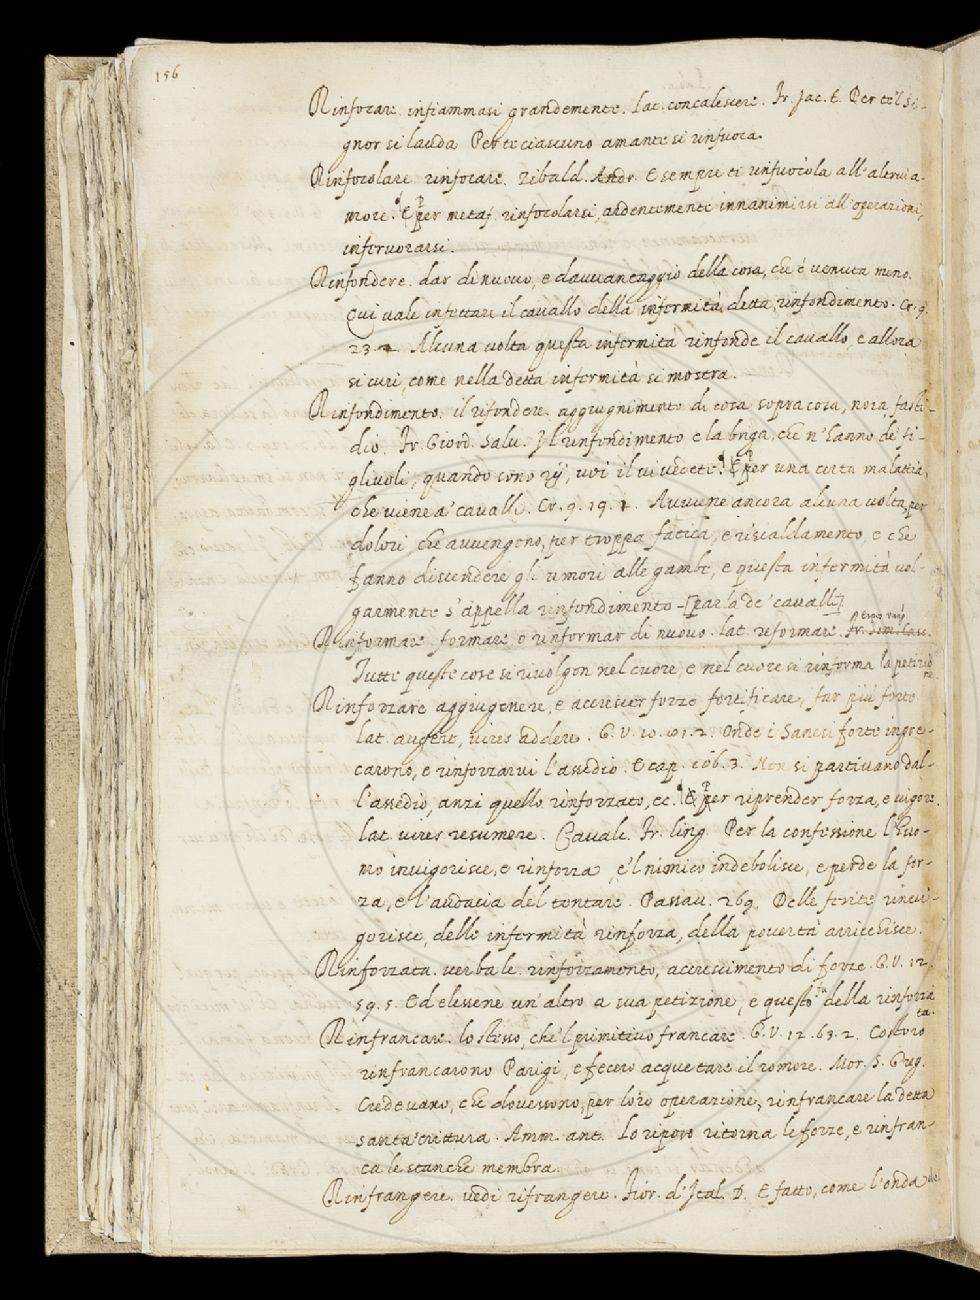 156
Rinfocare infiammasi grandemente. lat. concalescere. Fr. Jac. t. Per te 'l Si-
gnor si lauda Per te ciascuno amante si rinfuoca.
Rinfocolare rinfocare. Ribald. Andr. E sempre ti rinfuocola all'altrui a-
more. E per metaf. rinfocolarsi, ardentemente innanimirsi all'operazioni,
infervorarsi.
Rinfondere. dar di nuouo, e dauuantaggio della cosa, che è venuta meno.
Qui uale infettare il cauallo della infermità detta, rinfondimento. Cr. 9.
23. Alcuna uolta questa infermità rinfonde il cauallo, e allora
si curi, come nella detta infermità si mostra.
Rinfondimento. il rifondere. aggiugnimento di cosa sopra cosa, noia fasti-
dio. Fr. Giord. Salu. Il rinfondimento e la briga, che n'hanno de' fi-
gliuoli, quando sono rij, uoi il ui uedete. E per una certa malattia,
che uiene a' caualli. Cr. 9. 19. 1. Auuiene ancora alcuna uolta, per
dolori che auuengono, per troppa fatica, e riscaldamento, e che
fanno discendere gli umori alle gambe, e questa infermità uol-
garmente s'appella rinfondimento [parla de' caualli]
Rinformare formare, o rinformar di nuouo. lat. reformare.
Tutte queste cose si riuolgon nel cuore, e nel cuore si rinforma la petizio
ne
Rinforzare aggiugenere, e accrescer forze fortificare, far più forte
lat. augere, uires addere. G. V. 10. 2. Onde i Sanesi forte ingre-
carono, e rinforzarui l'assedio. E cap. 3. Non si partiuano dal-
l'assedio, anzi quello rinforzato, ec. E per riprender forza, e uigore.
lat. uires resumere. Caualc. Fr. ling. Per la confessione l'huo-
mo inuigorisce, e rinforza, e'l nimico indebolisce, e perde la for-
za, e l'audacia del tentare. Passau. 269. Delle ferite rinui-
gorisce, delle infermità rinforza, della pouertà arricchisce.
Rinforzata. uerbale. rinforzamento, accrescimento di forze. G. V. 12.
59. 5. Ed elessene un'altro a sua petizione, e questo fu della rinforza
ta.
Rinfrancare. lo stesso, che 'l primitiuo francare. G. V. 12. 63. 2. Costoro
rinfrancarono Parigi, e fecero acquetare il romore. Mor. S. Greg.
Credeuano, che douessono, per loro operazione, rinfrancare la detta
santa scrittura. Amm. ant. Lo riposo ritorna le forze, e rinfran-
ca le stanche membra.
Rinfrangere. uedi rifrangere. Fior. d'Ital. D. E fatto, come l'onda del